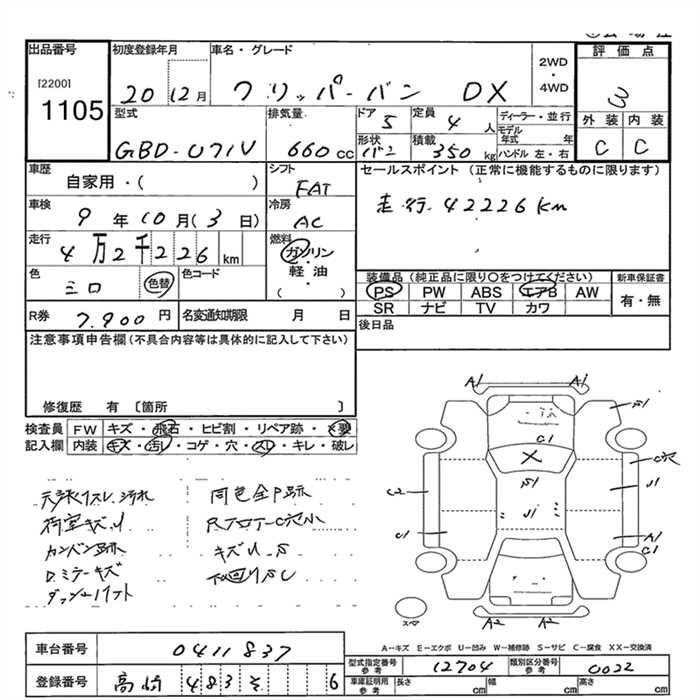 出品番号 初度登録年月 車名・グレード 評価点
[2200] 1105 20 12月 クリッパーバン DX 2WD・4WD 3
型式 排気量 ドア 5 定員 4人 ディーラー・並行 外装 内装
GBD-U71V 660cc 形状 バン 積載 350kg モデル年式 年 ハンドル 左・右 C C
車歴 シフト セールスポイント (正常に機能するものに限ります)
自家用・( ) FAT
車検 冷房 走行 42226km
9年10月(3日) AC
走行 燃料
4万2千226km ガソリン・軽油・( )
色 色替 色コード 装備品(純正品に限り○をつけてください) 新車保証書
シロ PS PW ABS エアB AW 有・無
R券 7.900円 名変通知期限 月 日 SR ナビ TV カワ
注意事項申告欄(不具合内容等は具体的に記入して下さい) 後日品
修復歴 有 〔箇所 〕
検査員 FW キズ・飛石・ヒビ割・リペア跡・X要
記入欄 内装 キズ・汚レ・コゲ・穴・スレ・キレ・破レ
A1 A1
S1
C1
X C穴
C2 S1 J1
C1 A1
C1
スペア A2 A2
汚れ 同色全P跡
荷室キズU
カンバン跡 キズU.S
D.ミラーキズ 下回りSC
A-キズ E-エクボ U-凹み W-補修跡 S-サビ C-腐食 XX-交換済
車台番号 0411837 型式指定番号 参考 12704 類別区分番号 参考 0022
登録番号 高崎 483 そ 6 車庫証明用 参考 長さ cm 幅 cm 高さ cm